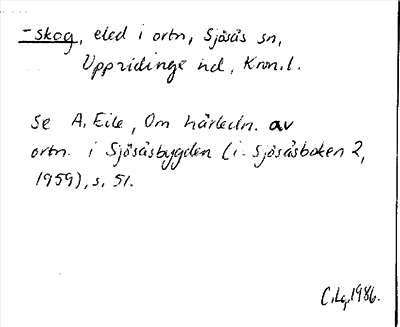 -skog, eled i ortn, Sjösås sn,
Uppvidinge hd, Kron.l.
se A. Eile, Om härledn. av
ortn. i Sjösåsbygden (i. Sjösåsboken 2,
1959), s. 51.
C.Lg, 1986.